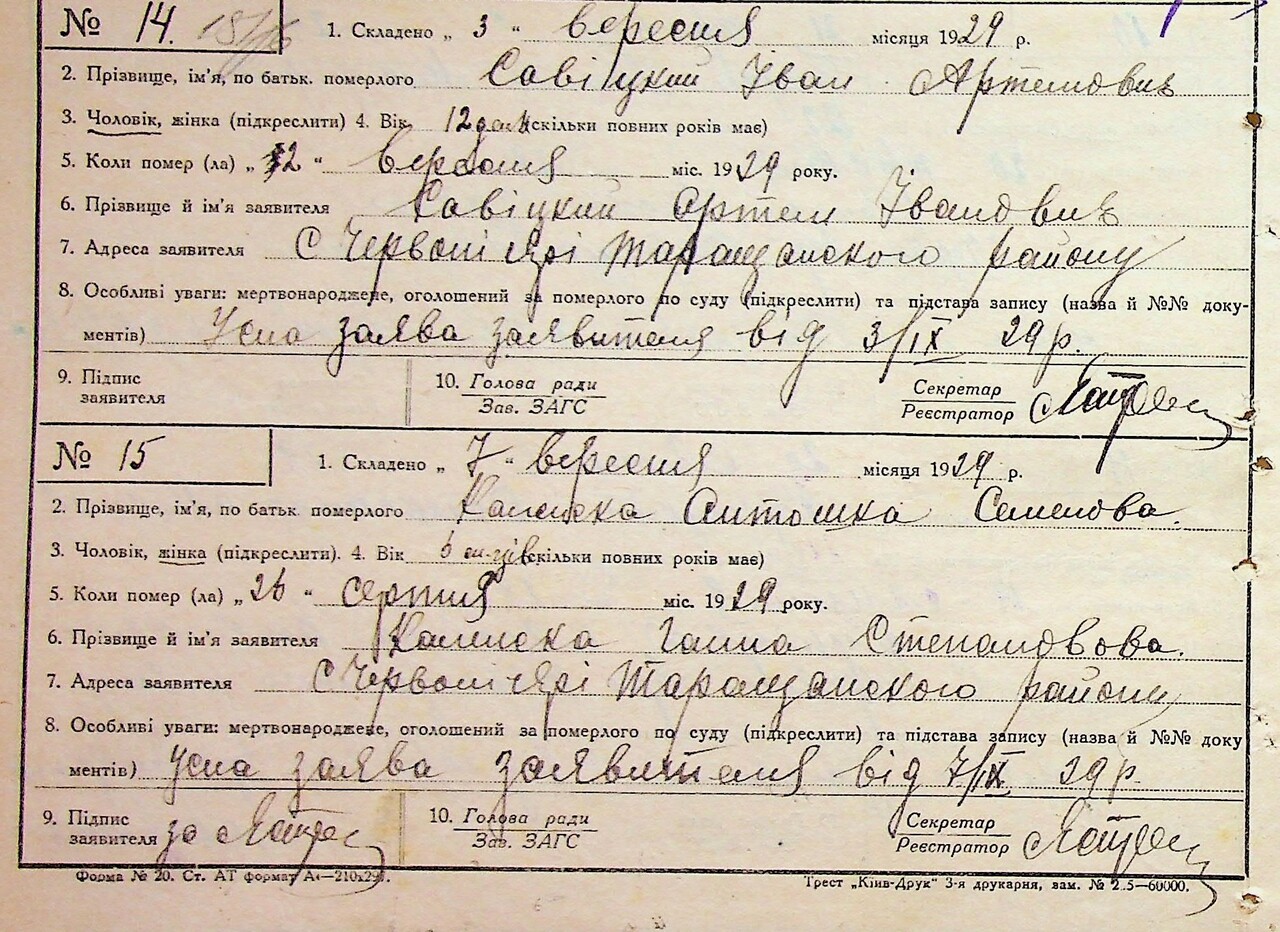 № 14. 1. Складено „ 3 “ вересня місяця 1929 р.
2. Прізвище, ім'я, по батьк. померлого Савіцкий Іван Артемович
3. Чоловік, жінка (підкреслити) 4. Вік 12 скільки повних років має)
5. Коли помер (ла) „ 2 “ вересня міс. 1929 року.
6. Прізвище й ім'я заявителя Савіцкий Артем Іванович
7. Адреса заявителя С Червоні Ярі Таращанского району
8. Особливі уваги: мертвонароджене, оголошений за померлого по суду (підкреслити) та підстава запису (назва й №№ доку-
ментів) Усна заява заявителя від 3/IX 29 р.
9. Підпис заявителя
10. Голова ради
Зав. ЗАГС
Секретар
Реєстратор
№ 15 1. Складено „ 7 “ вересня місяця 1929 р.
2. Прізвище, ім'я, по батьк. померлого Калиска Антошка Семенова.
3. Чоловік, жінка (підкреслити). 4. Вік 6 м-ців скільки повних років має)
5. Коли помер (ла) „ 26 “ серпня міс. 1929 року.
6. Прізвище й ім'я заявителя Калиска Ганна Степановова.
7. Адреса заявителя С Червоні Ярі Таращанского району
8. Особливі уваги: мертвонароджене, оголошений за померлого по суду (підкреслити) та підстава запису (назва й №№ доку
ментів) Усна заява заявителя від 7/IX 29 р.
9. Підпис заявителя за
10. Голова ради
Зав. ЗАГС
Секретар
Реєстратор
Форма № 20. Ст. АТ формат А4—210х297.
Трест „Київ-Друк“ 3-я друкарня, зам. № 2.5—60000.